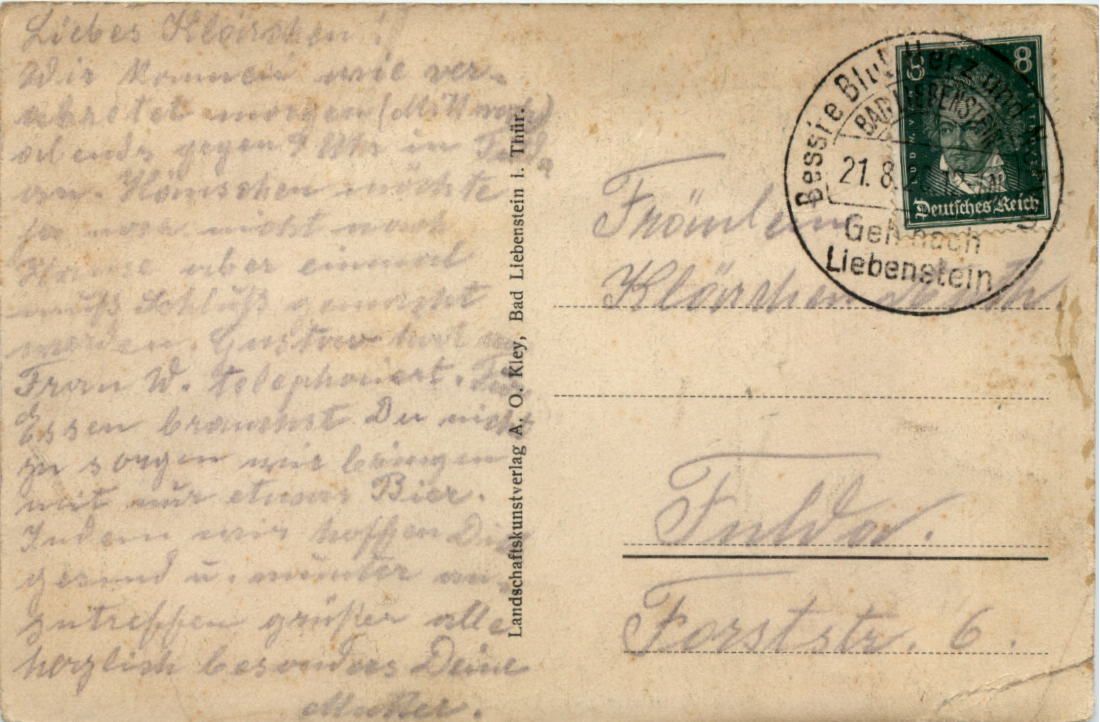 Liebes Klärchen!
Wir kommen wie ver-
abredet morgen (Mittwoch)
abends gegen 9 Uhr in Fulda
an. Hänschen möchte
ja noch nicht nach
Hause aber einmal
muß Schluß gemacht
werden. Gustav hat an
Frau W. telephoniert. Für
Essen brauchst Du nicht
zu sorgen wir bringen
mit nur etwas Bier.
Indem wir hoffen Dich
gesund u. munter an-
zutreffen grüßen alle
herzlich besonders Deine
Mutter.
Landschaftskunstverlag A. O. Kley, Bad Liebenstein i. Thür.
8 8
Deutsches Reich
Herz und
BAD LIEBENSTEIN
21. 8.
Geh nach
Liebenstein
Fräulein
Klärchen
Fulda.
Forststr. 6.